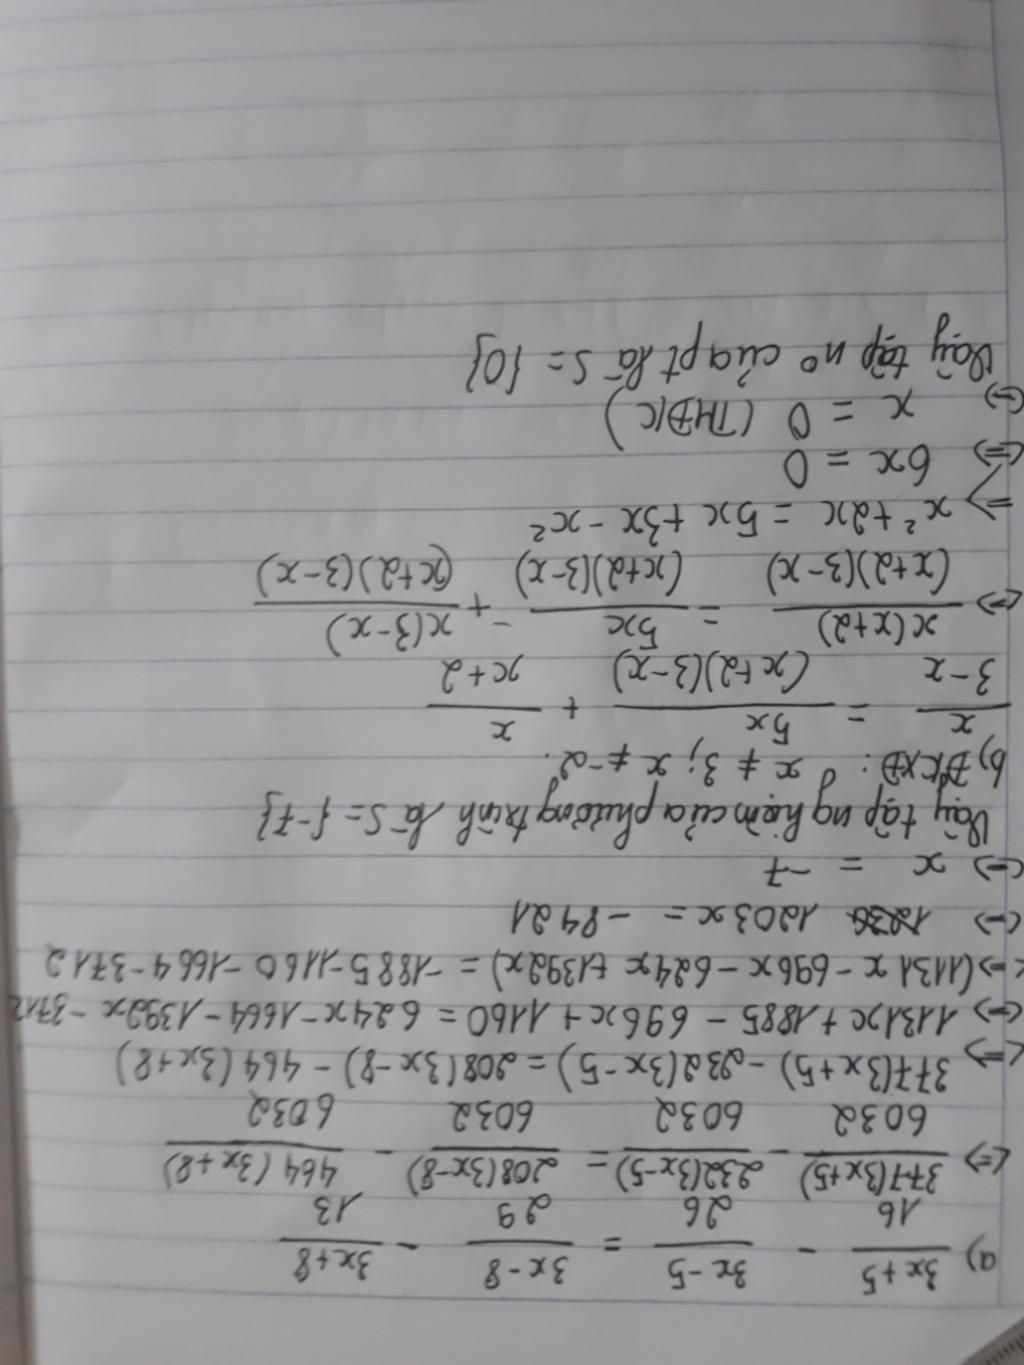 a) (3x+5)/16 - (3x-5)/26 = (3x-8)/29 - (3x+8)/13
<=> 377(3x+5)/6032 - 232(3x-5)/6032 = 208(3x-8)/6032 - 464(3x+8)/6032
<=> 377(3x+5) - 232(3x-5) = 208(3x-8) - 464(3x+8)
<=> 1131x + 1885 - 696x + 1160 = 624x - 1664 - 1392x - 3712
<=> (1131x - 696x - 624x + 1392x) = -1885 - 1160 - 1664 - 3712
<=> 1203x = -8421
<=> x = -7
Vậy tập nghiệm của phương trình là S = {-7}
b) ĐKXĐ: x ≠ 3; x ≠ -2.
x/(3-x) = 5x/((x+2)(3-x)) + x/(x+2)
<=> x(x+2)/((x+2)(3-x)) = 5x/((x+2)(3-x)) + x(3-x)/((x+2)(3-x))
=> x² + 2x = 5x + 3x - x²
<=> 6x = 0
<=> x = 0 (TMĐK)
Vậy tập n° của pt là S = {0}